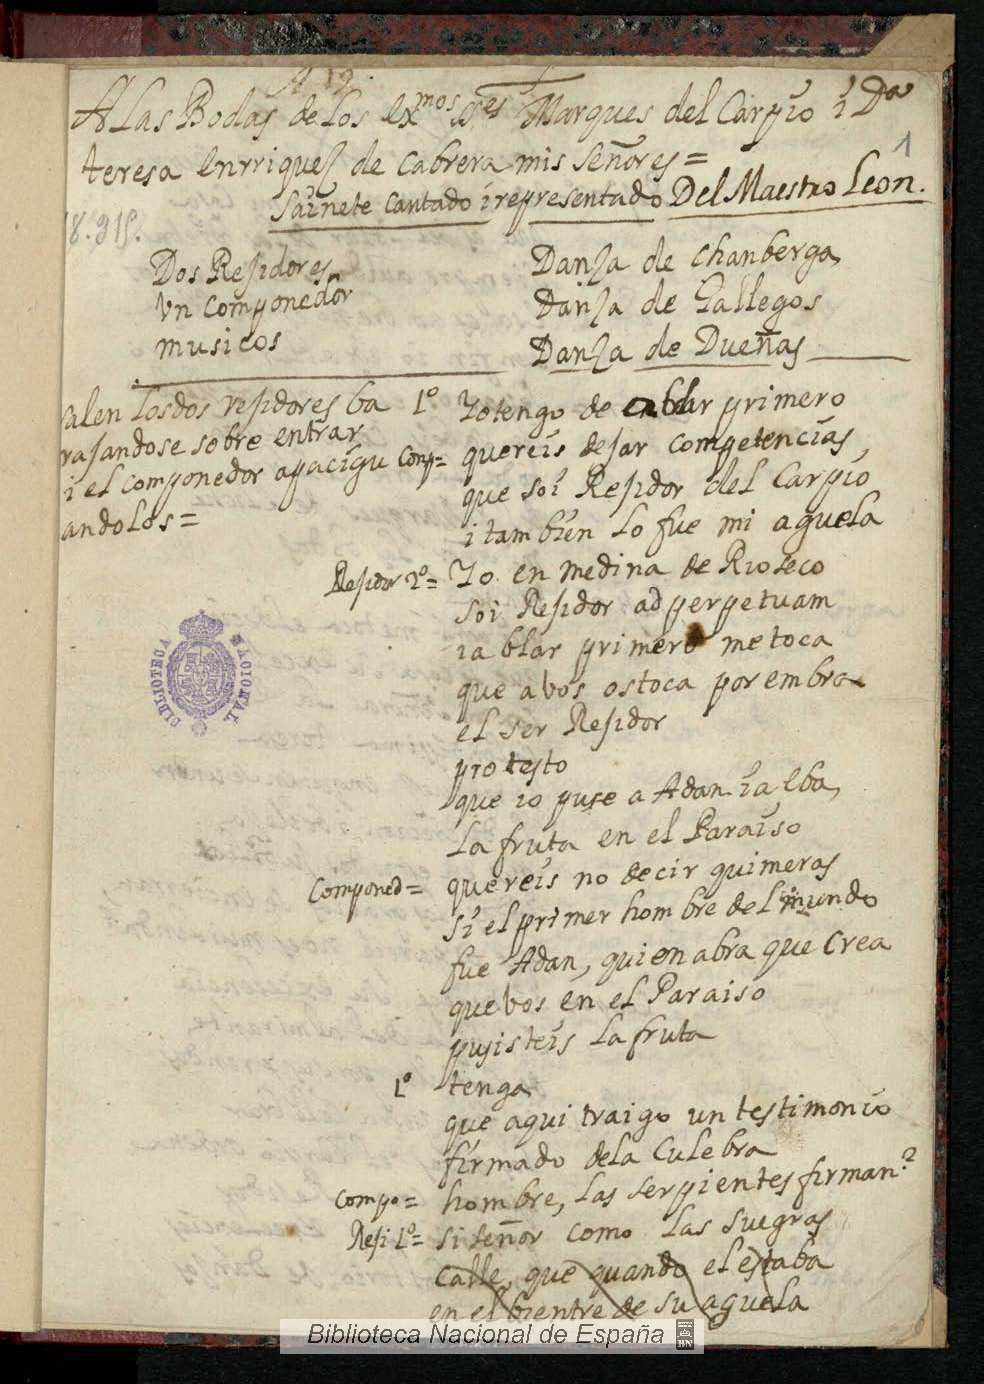 A 12
A Las Bodas de los ex^mos s^res Marques del Carpio i D^a
teresa enrriquez de cabrera mis señores =
sainete cantado i representado Del Maestro Leon.
1
18.315.
Dos Residores
Vn componedor
musicos
Danza de chanberga
Danza de Gallegos
Danza de Dueñas
salen los dos residores ba
rajandose sobre entrar
i el componedor apacigu
andolos =
1º Yo tengo de ablar primero
Comp= quereis dejar competencias
que soi Residor del Carpio
i tambien lo fue mi aguela
Residor 2º= Yo en medina de Rioseco
soi Residor ad perpetuam
i a blar primero me toca
que a vos os toca por embra
el ser Residor
protesto
que io puse a Adan i a eba
La fruta en el Paraiso
Componed= quereis no decir quimeras
si el primer hombre del mundo
fue Adan, quien abra que crea
que bos en el Paraiso
pusisteis La fruta
1º tenga
que aqui traigo un testimonio
firmado de la Culebra
Compo= hombre, Las serpientes firman?
Resi 1º= si señor como Las suegras
calle, que quando el estaba
en el bientre de su aguela
BIBLIOTECA NACIONAL
Biblioteca Nacional de España